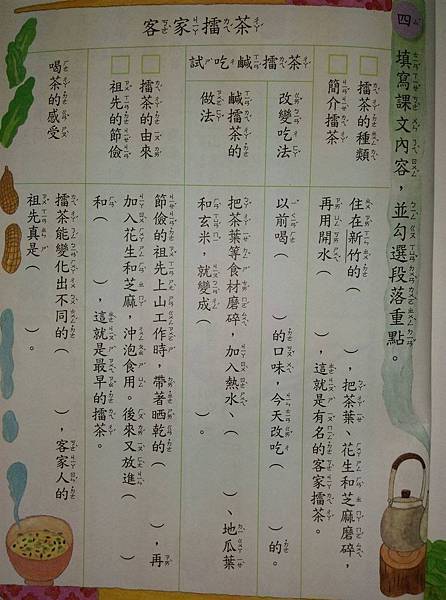 四
填寫課文內容,並勾選段落重點。
客家擂茶
□擂茶的種類
□簡介擂茶
住在新竹的(　　),把茶葉、花生和芝麻磨碎,
再用開水(　　),這就是有名的客家擂茶。
試吃鹹擂茶
改變吃法
以前喝(　　)的口味,今天改吃(　　)的。
鹹擂茶的
做法
把茶葉等食材磨碎,加入熱水、(　　)、地瓜葉
和玄米,就變成(　　)。
□擂茶的由來
□祖先的節儉
節儉的祖先上山工作時,帶著晒乾的(　　),再
加入花生和芝麻,沖泡食用。後來又放進(　　)
和(　　),這就是最早的擂茶。
喝茶的感受
擂茶能變化出不同的(　　),客家人的
祖先真是(　　)。